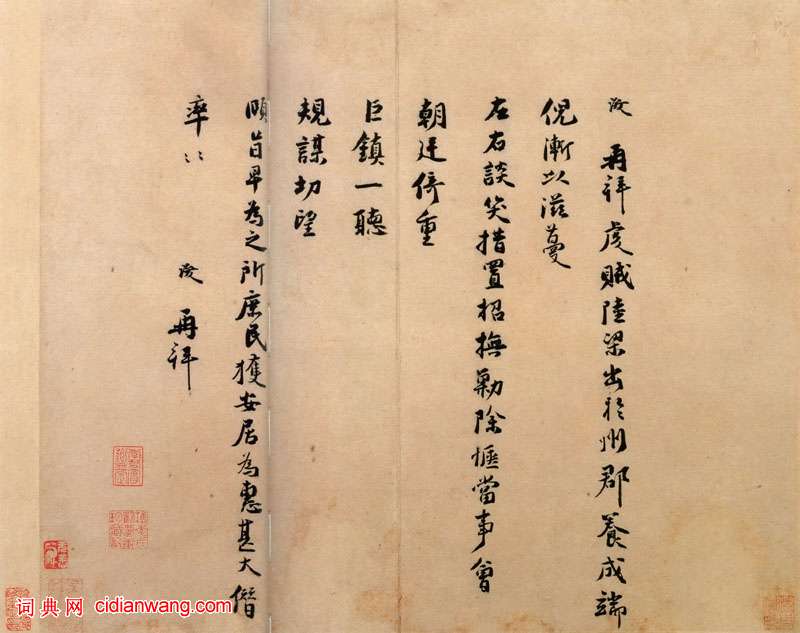 浚 再拜虔賊陸梁出於州郡養成端
倪漸以滋蔓
左右談笑措置招撫勦除惬當事會
朝廷倚重
巨鎮一聽
規謀切望
頤旨早為之所庶民獲安居為惠甚大僭
率〻
浚 再拜
词典网 cidianwang.com